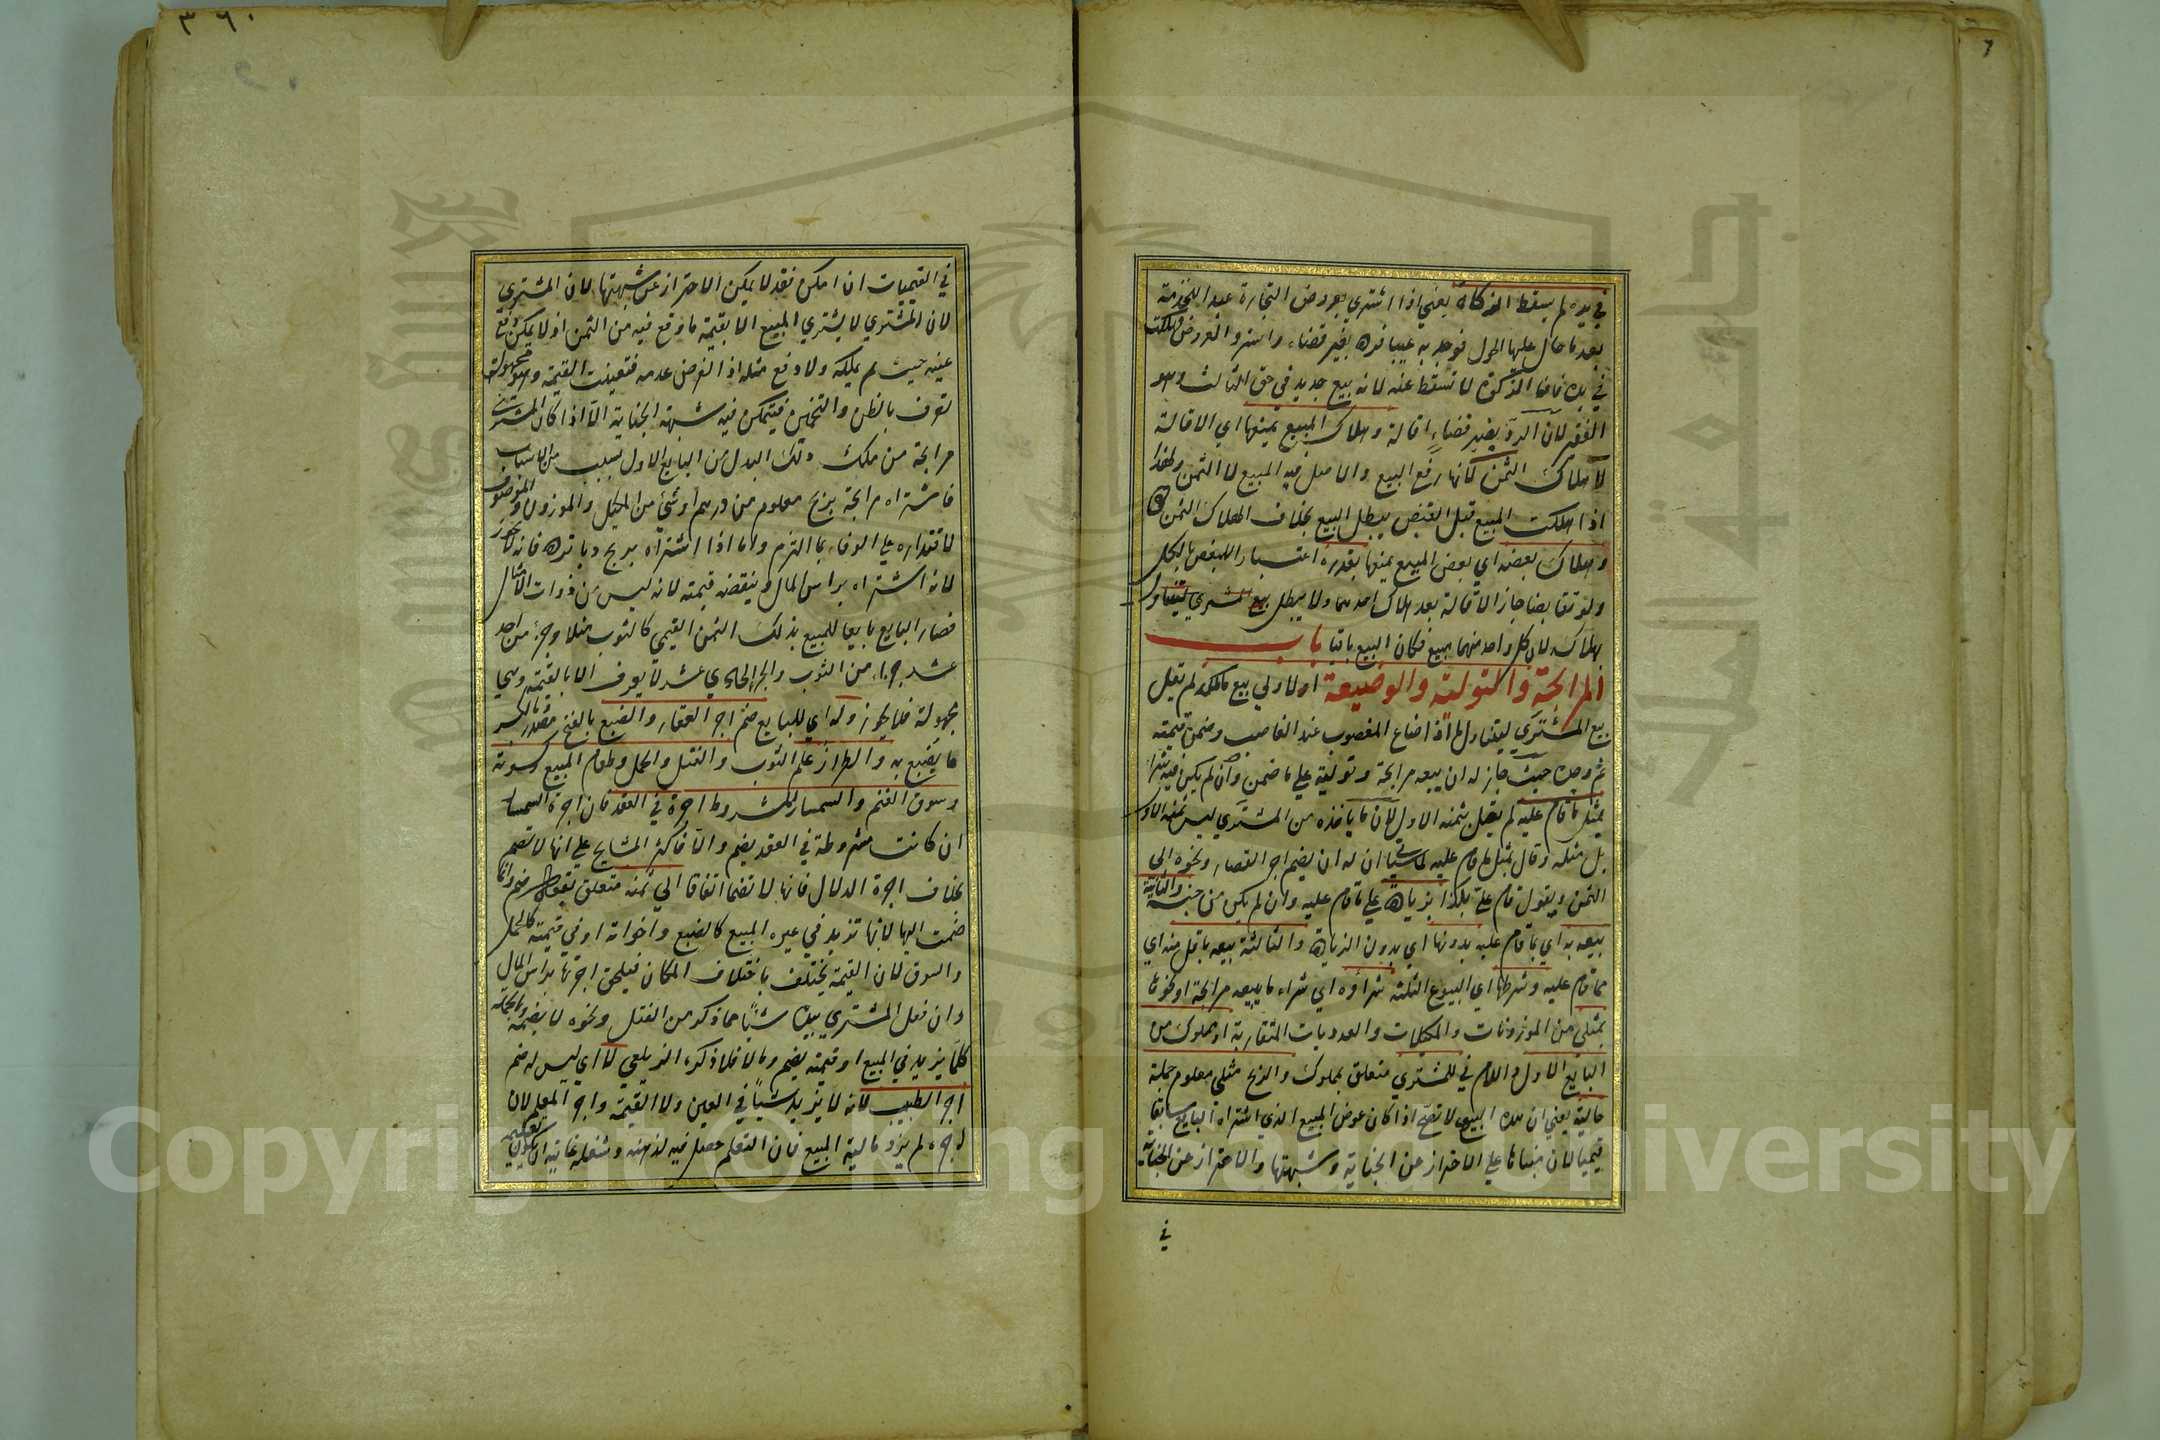 في يده لم يسقط الزكاة يعني اذا اشتري بعروض التجارة عبدا للخدمة
بعد ما حال عليها الحول فوجد به عيبا فرده بغير قضاء واسترد العروض فهلكت
في يده فان الزكوة لا تسقط عنه لانه بيع جديد في حق الثالث وهو
الفقير لان الرد بغير قضاء اقالة وهلاك المبيع يمنعها اي الاقالة
لا هلاك الثمن لانها رفع البيع والاصل فيه المبيع لا الثمن ولهذا
اذا هلكت المبيع قبل القبض يبطل البيع بخلاف اهلاك الثمن
وهلاك بعضه اي بعض المبيع يمنعها بقدره اعتبارا للبعض بالكل
ولو تقايضا جاز الاقالة بعد هلاك احدهما ولا يبطل
بهلاك لان كل واحد منهما مبيع فكان البيع باقيا باب
المرابحة والتولية والوضيعة الاولي بيع ما ملكه لم يقل
بيع المشتري ليتناول ما اذا ضاع المغصوب عند الغاصب وضمن قيمته
ثم وجده حيث جاز له ان يبيعه مرابحة وتولية علي ما ضمن وان لم يكن فيه شراء
بمثل ما قام عليه لم يقل بثمنه الاول لان ما ياخذه من المشتري ليس ثمنه الاول
بل مثله وقال بمثل ما قام عليه لما سياتي ان له ان يضم اجر القصار ونحوه الي
الثمن ويقول قام علي بكذا بزيادة علي ما قام عليه وان لم يكن من جنسه والثانية
بيعه به اي بما قام عليه بدونها اي بدون الزيادة والثالثة بيعه باقل منه اي
مما قام عليه وشرطها اي البيوع الثلثة شراؤه اي شراء ما يبيعه مرابحة او نحوها
بمثلي من الموزونات والمكيلات والعدديات المتقاربة او بمملوك من
البايع الاول واللام في للمشتري متعلق بمملوك والربح مثلي معلوم جملة
حالية يعني ان هذه البيوع لا تصح اذا كان عوض المبيع الذي اشتراه البايع سابقا
قيميا لان مبناها علي الاحتراز عن الخيانة وشبهتها والاحتراز عن الخيانة
في
٣٦٠
في القيميات ان امكن فقد لا يمكن الاحتراز عن شبهتها لان المشتري
لان المشتري لا يشتري المبيع الا بقيمة ما وقع فيه من الثمن اذ لا يمكن دفع
عينه حيث لم يملكه ولا دفع مثله اذ الفرض عدمه فتعينت القيمة وهي مجهولة
تعرف بالظن والتخمين فيتمكن فيه شبهة الخيانة الا اذا كان المشتري
مرابحة من ملك ذلك البدل من البايع الاول بسبب من الاسباب
فاشتراه مرابحة بربح معلوم من درهم او شئ من المكيل والموزون الموصوف
لاقتداره علي الوفاء بما التزم واما اذا اشتراه بربح ده يازده فانه لا يجوز
لانه اشتراه براس المال وبنقضه قيمته لانه ليس من ذوات الامثال
فصار البايع بايعا للمبيع بذلك الثمن القيمي كالثوب مثلا وجزء من احد
عشر جزءا من الثوب والجزء الحادي عشر لا يعرف الا بالقيمة وهي
مجهولة فلا يجوز وله اي للبايع ضم اجر القصار والصبغ بالفتح مصدر وبالكسر
ما يصبغ به والطراز علم الثوب والفتل والحمل وطعام المبيع وكسوته
وسوق الغنم والسمسار المشروط اجرة في العقد فان اجرة السمسار
ان كانت مشروطة في العقد يضم والا فاكثر المشايخ علي انها لا تضم
بخلاف اجرة الدلال فانها لا تضم اتفاقا الي ثمنه متعلق بقوله ضم وانما
ضمت اليها لانها تزيد في عين المبيع كالصبغ واخواته او في قيمته كالحمل
والسوق لان القيمة تختلف باختلاف المكان فيلحق اجرتها براس المال
وان فعل المشتري بيده شيئا مما ذكر من الفتل ونحوه لا يضمه وبالجملة
كلما يزيد في المبيع او قيمته يضم وما لا فلا ذكره الزيلعي لا اي ليس له ضم
اجر الطبيب لانه لا يزيد شيئا في العين ولا القيمة واجر المعلم لان
اجره لم يزد مالية المبيع فان التعلم حصل فيه لذهنه وشغله غايته ان يكون تعليمه
Copyright © King Saud University